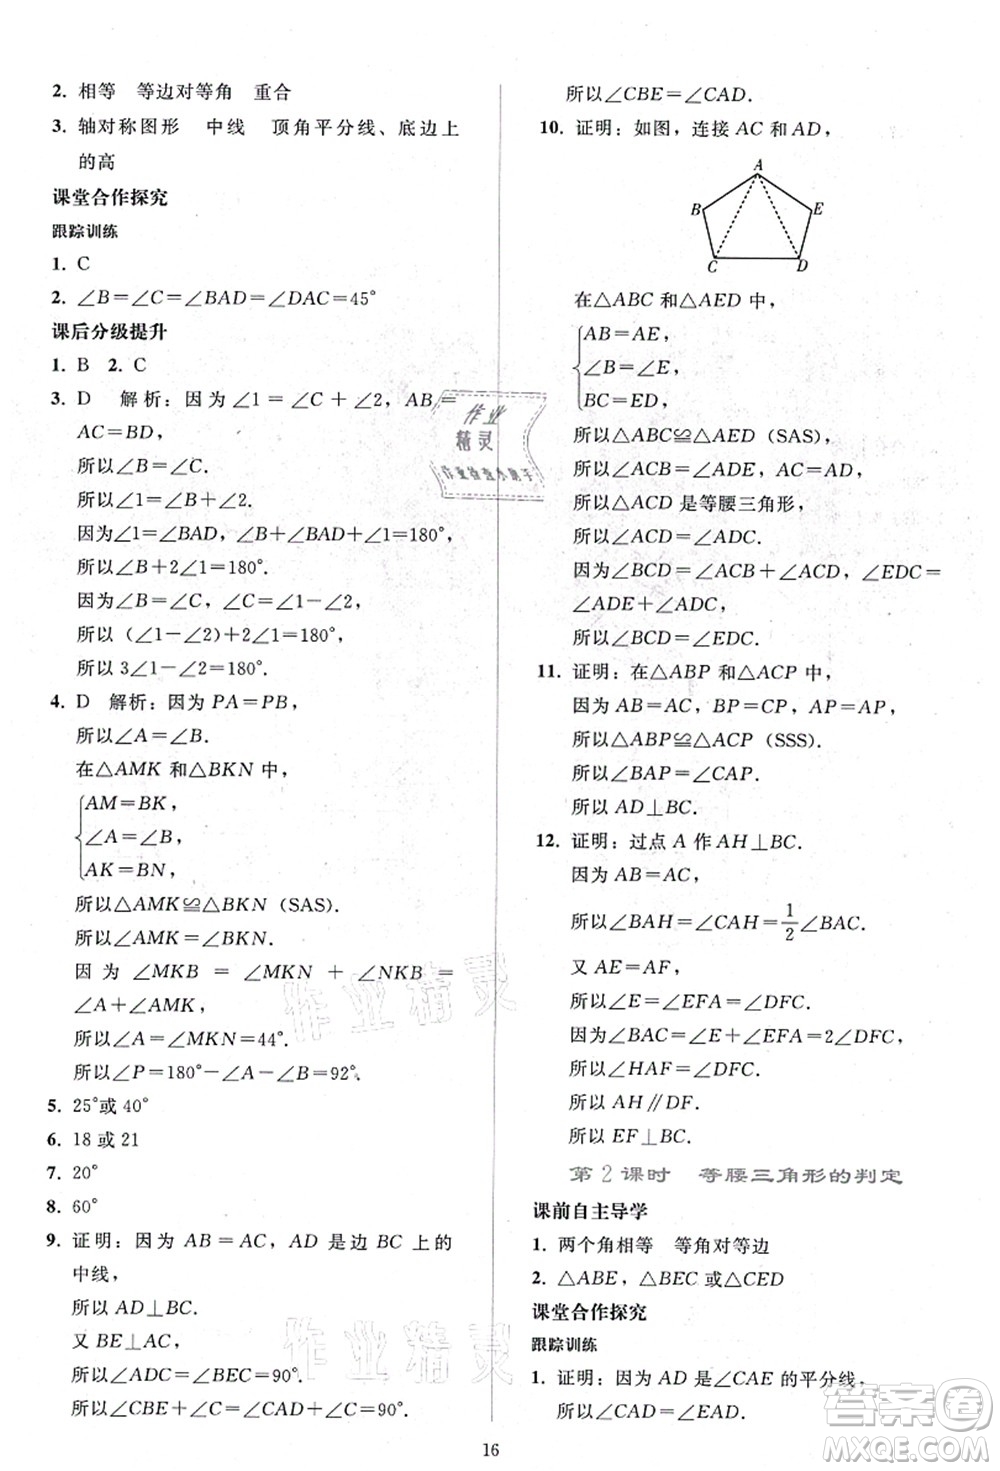 2. 相等 等边对等角 重合
3. 轴对称图形 中线 顶角平分线、底边上
的高
课堂合作探究
跟踪训练
1. C
2. ∠B=∠C=∠BAD=∠DAC=45°
课后分级提升
1. B 2. C
3. D 解析：因为∠1=∠C+∠2，AB=
AC=BD，
所以∠B=∠C.
所以∠1=∠BAD.
因为∠1=∠BAD，∠B+∠BAD+∠1=180°，
所以∠B+2∠1=180°.
因为∠B=∠C，∠C=∠1-∠2，
所以(∠1-∠2)+2∠1=180°，
所以 3∠1-∠2=180°.
4. D 解析：因为 PA=PB，
所以∠A=∠B.
在△AMK 和△BKN 中，
AM=BK，
∠A=∠B，
AK=BN，
所以△AMK≌△BKN (SAS).
所以∠AMK=∠BKN.
因为 ∠MKB = ∠MKN + ∠NKB =
∠A+∠AMK，
所以∠A=∠MKN=44°.
所以∠P=180°-∠A-∠B=92°.
5. 25°或 40°
6. 18 或 21
7. 20°
8. 60°
9. 证明：因为 AB=AC，AD 是边 BC 上的
中线，
所以 AD⊥BC.
又 BE⊥AC，
所以∠ADC=∠BEC=90°.
所以∠CBE+∠C=∠CAD+∠C=90°.
所以∠CBE=∠CAD.
10. 证明：如图，连接 AC 和 AD，
A
B E
C D
在△ABC 和△AED 中，
AB=AE，
∠B=∠E，
BC=ED，
所以△ABC≌△AED (SAS).
所以△ACD 是等腰三角形，
所以∠ACD=∠ADC.
因为∠BCD=∠ACB+∠ACD，∠EDC=
∠ADE+∠ADC，
所以∠BCD=∠EDC.
11. 证明：在△ABP 和△ACP 中，
因为 AB=AC，BP=CP，AP=AP，
所以△ABP≌△ACP (SSS).
所以∠BAP=∠CAP.
所以 AD⊥BC.
12. 证明：过点 A 作 AH⊥BC.
因为 AB=AC，
所以∠BAH=∠CAH=1/2∠BAC.
又 AE=AF，
所以∠E=∠EFA=∠DFC.
因为∠BAC=∠E+∠EFA=2∠DFC，
所以∠CAH=∠DFC.
所以 AH∥DF.
所以 EF⊥BC.
第 2 课时 等腰三角形的判定
课前自主导学
1. 两个角相等 等角对等边
2. △ABE，△BEC 或△CED
课堂合作探究
跟踪训练
1. 证明：因为 AD 是∠CAE 的平分线，
所以∠CAD=∠EAD.
16
作业
精灵
作业检查小助手
作业精灵
作业精灵
答案圈
MXQE.COM